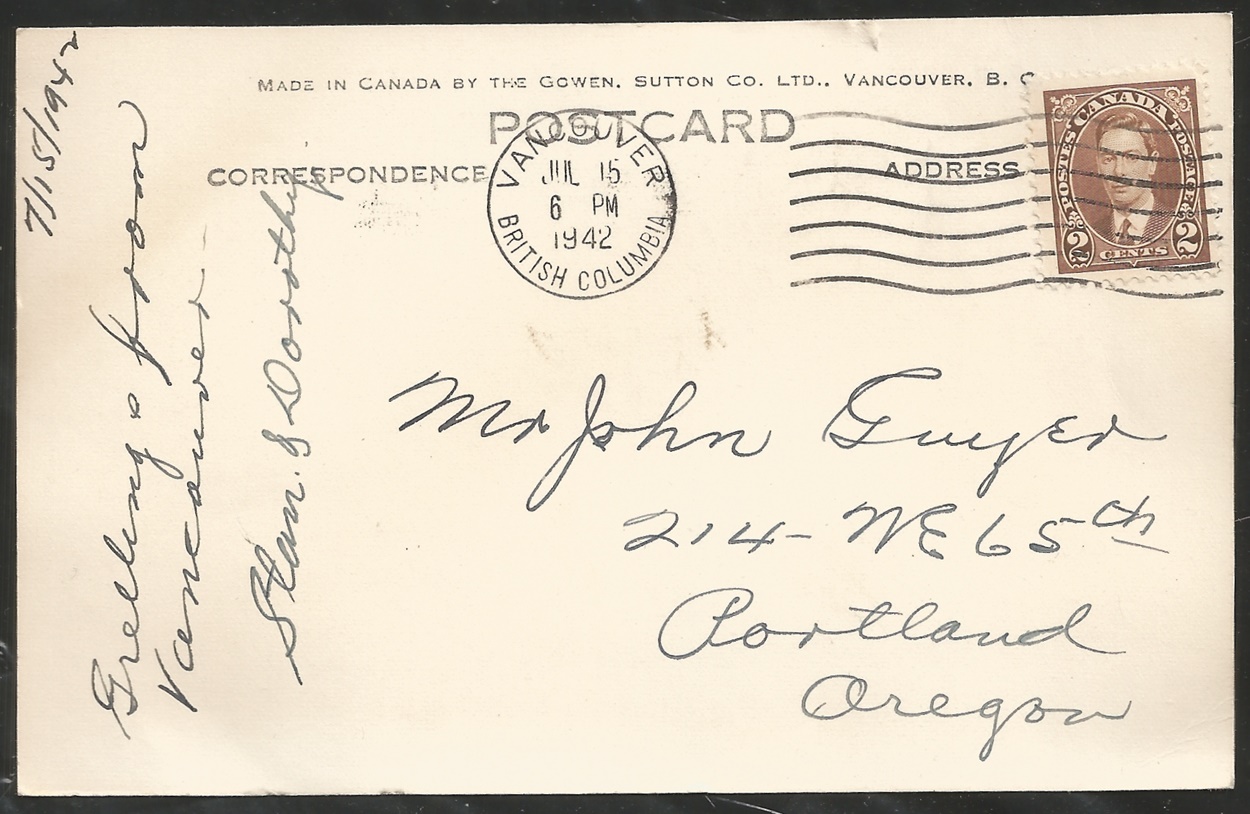 7/15/1942
MADE IN CANADA BY THE GOWEN, SUTTON CO. LTD., VANCOUVER, B. C
POSTCARD
CORRESPONDENCE
ADDRESS
VANCOUVER
JUL 15
6 PM
1942
BRITISH COLUMBIA
CANADA
POSTES POSTAGE
2 CENTS 2
Greetings from
Vancouver
Stan. & Dorothy
Mr John Guyer
214- NE 65th
Portland
Oregon